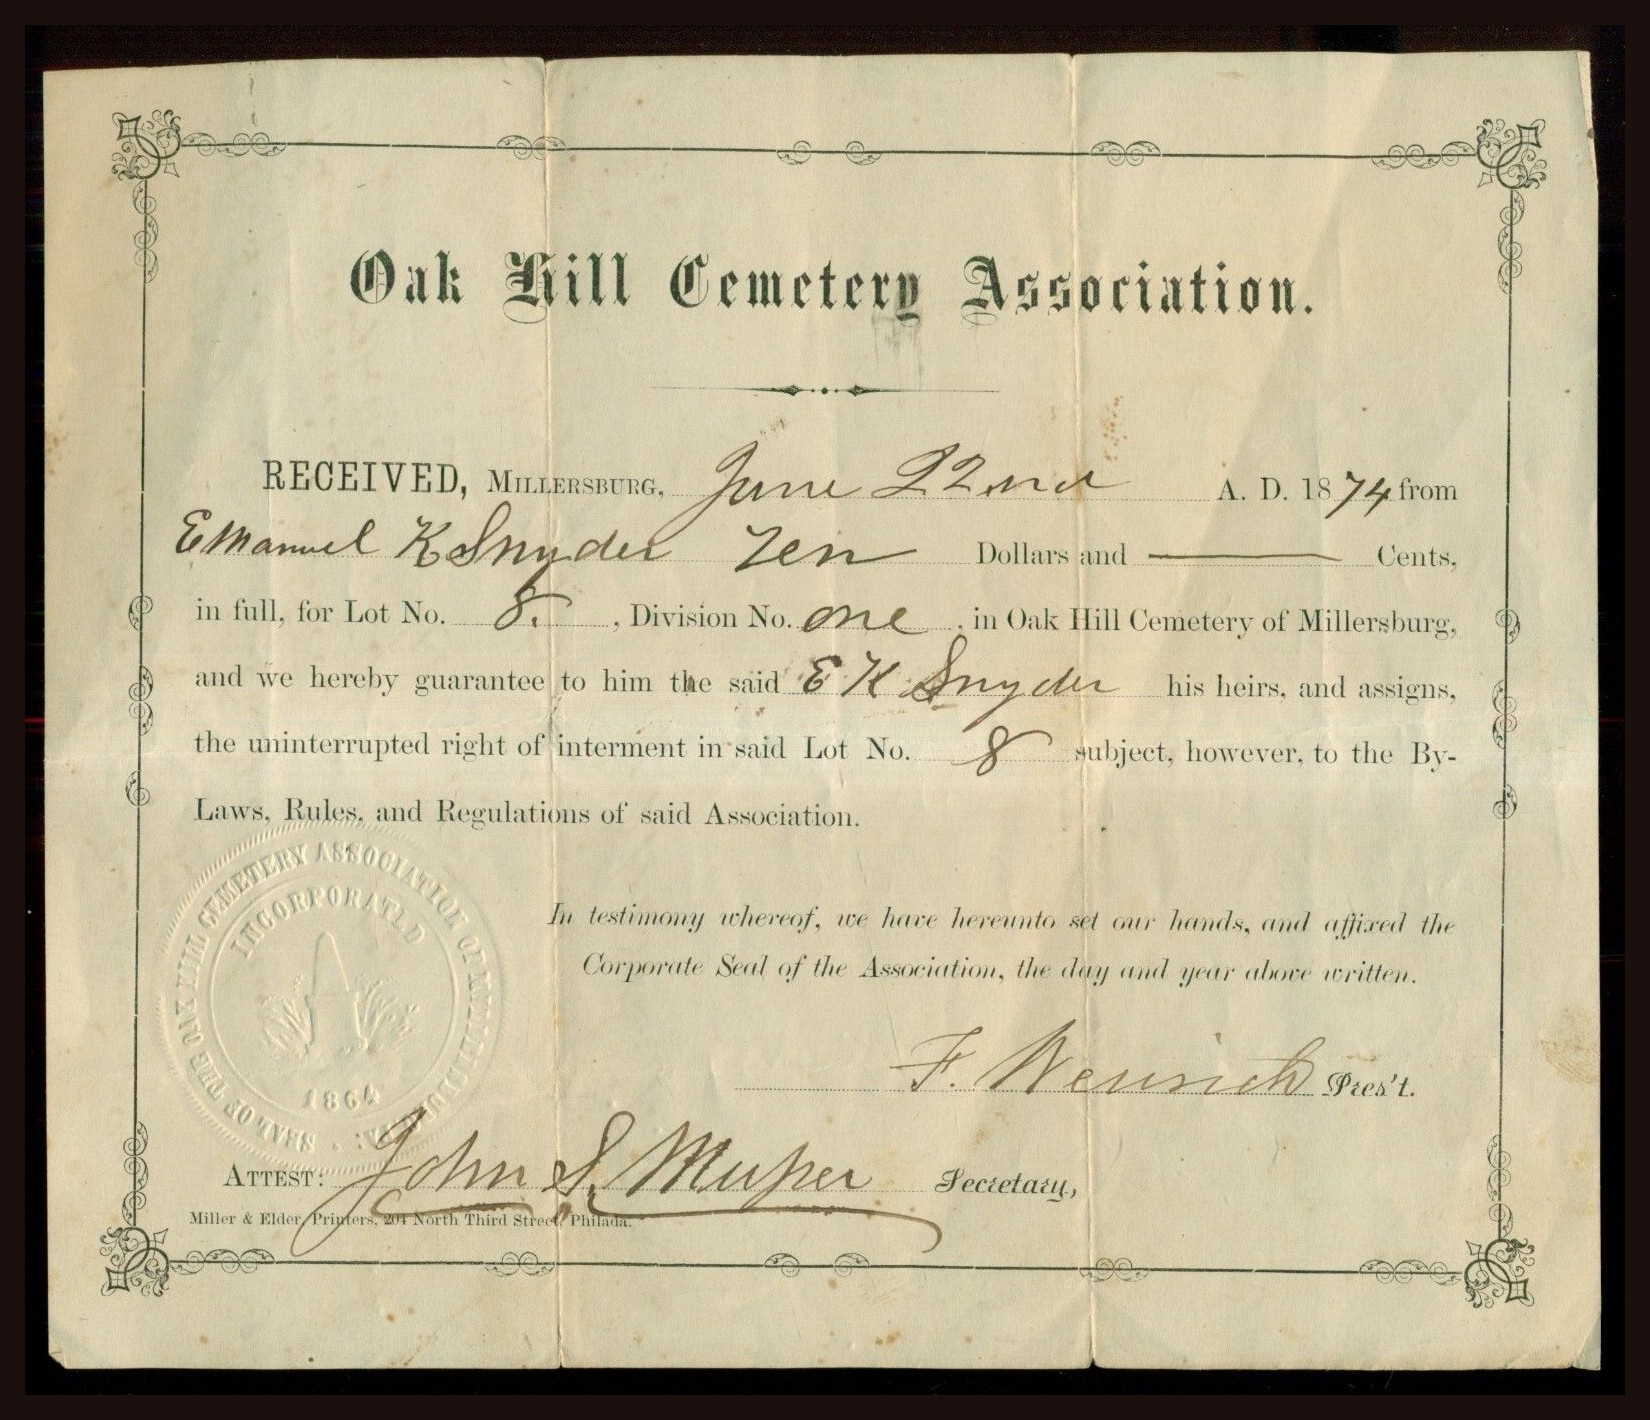 Oak Hill Cemetery Association.
RECEIVED, MILLERSBURG, June 22nd A. D. 1874 from
Emanuel K Snyder Ten Dollars and —— Cents,
in full, for Lot No. 8. , Division No. one , in Oak Hill Cemetery of Millersburg,
and we hereby guarantee to him the said E K Snyder his heirs, and assigns,
the uninterrupted right of interment in said Lot No. 8 subject, however, to the By-
Laws, Rules, and Regulations of said Association.
SEAL OF THE OAK HILL CEMETERY ASSOCIATION OF
INCORPORATED
1864
In testimony whereof, we have hereunto set our hands, and affixed the
Corporate Seal of the Association, the day and year above written.
F. Wenrich Pres't.
ATTEST: John S. Musser Secretary,
Miller & Elder, Printers, 204 North Third Street, Philada.